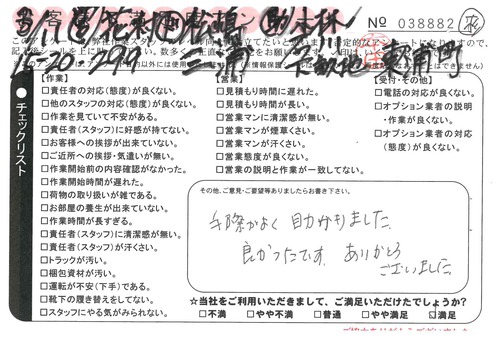 No 038882
【作業】
□責任者の対応(態度)が良くない。
□他のスタッフの対応(態度)が良くない。
□作業を見ていて不安がある。
□責任者(スタッフ)に好感が持てない。
□お客様への挨拶が出来ていない。
□ご近所への挨拶・気遣いが無い。
□作業開始前の内容確認がなかった。
□作業開始時間が遅れた。
□荷物の取り扱いが雑である。
□お部屋の養生が出来ていない。
□作業時間が長すぎる。
□責任者(スタッフ)に清潔感が無い。
□責任者(スタッフ)が汗くさい。
□トラックが汚い。
□梱包資材が汚い。
□運転が不安(下手)である。
□靴下の履き替えをしてない。
□スタッフにやる気がみられない。
【営業】
□見積もり時間に遅れた。
□見積もり時間が長い。
□営業マンに清潔感が無い。
□営業マンが煙草くさい。
□営業マンが汗くさい。
□営業態度が良くない。
□営業の説明と作業が一致してない。
【受付・その他】
□電話の対応が良くない。
□オプション業者の説明
・作業が良くない。
□オプション業者の対応
(態度)が良くない。
チェックリスト
その他、ご意見・ご要望等ありましたらお書き下さい。
手際がよく 助かりました。
良かったです。ありがとう
ございました。
☆当社をご利用いただきまして、ご満足いただけたでしょうか?
□不満 □やや不満 □普通 □やや満足 ☑満足